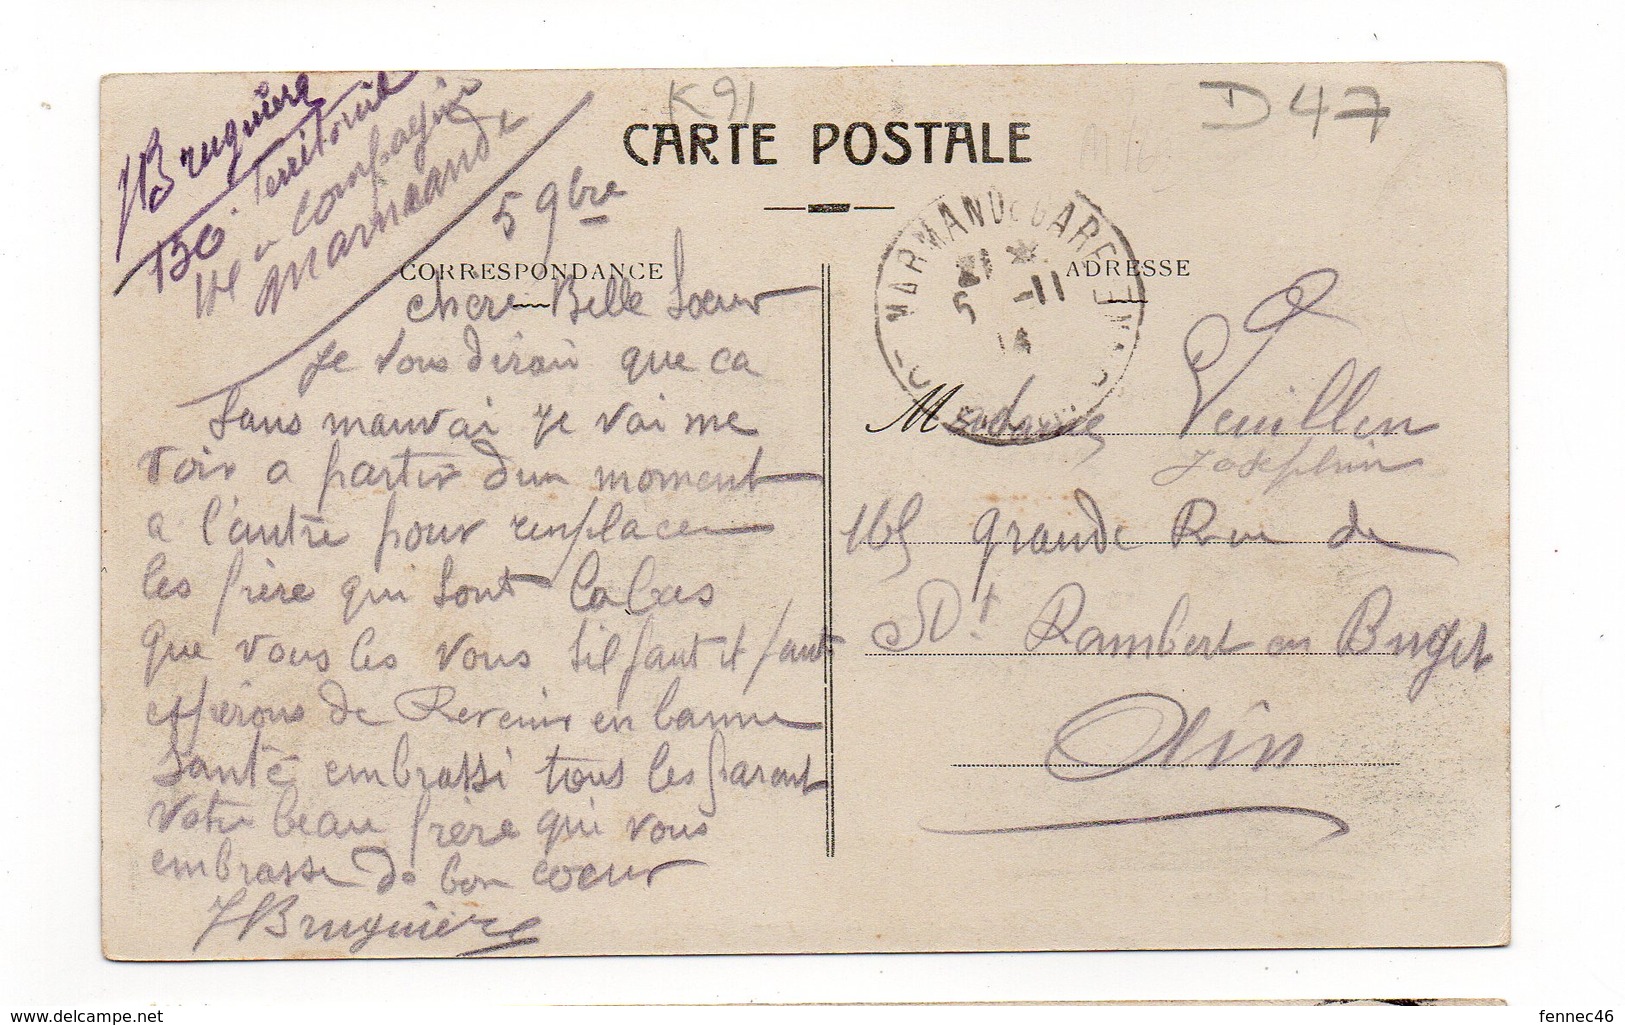 K91
D 47
CARTE POSTALE
J Bruguière
130. Territorial
Compagnie
Marmande
5 9bre
CORRESPONDANCE
ADRESSE
MARMANDE GARE
5 -11
14
chere Belle Soeur
Je vous dirai que ca
Sans mauvai je vai me
voir a partir dun moment
a l'autre pour remplacer
les frère qui sont labas
que vous les vous sil faut it faut
esperons de Revenir en bonne
Santé embrassi tous les parent
votre beau frère qui vous
embrasse de bon coeur
J Bruguière
Madame Veuillen
Josephine
165 grande Rue de
St Rambert en Bugey
Ain
delcampe.net
fennec46